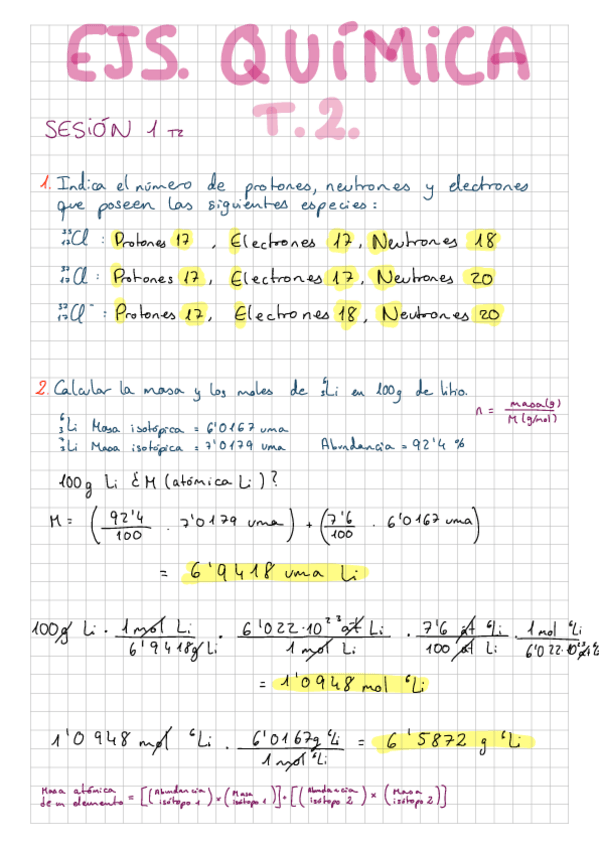 EJS. QUÍMICA
T.2.
SESIÓN 1 T2
1. Indica el número de protones, neutrones y electrones
que poseen las siguientes especies:
³⁵₁₇Cl : Protones 17 , Electrones 17, Neutrones 18
³⁷₁₇Cl : Protones 17, Electrones 17, Neutrones 20
³⁷₁₇Cl⁻ : Protones 17, Electrones 18, Neutrones 20
2. Calcular la masa y los moles de ⁶₃Li en 100g de litio.
n = masa(g) / M(g/mol)
⁶₃Li Masa isotópica = 6'0167 uma
⁷₃Li Masa isotópica = 7'0179 uma Abundancia = 92'4 %
100g Li ¿M (atómica Li)?
M = (92'4/100 · 7'0179 uma) + (7'6/100 · 6'0167 uma)
= 6'9418 uma Li
100g Li · 1 mol Li / 6'9418g Li · 6'022·10²³ at Li / 1 mol Li · 7'6 at ⁶Li / 100 at Li · 1 mol ⁶Li / 6'022·10²³ at
= 1'0948 mol ⁶Li
1'0948 mol ⁶Li · 6'0167g ⁶Li / 1 mol ⁶Li = 6'5872 g ⁶Li
Masa atómica de un elemento = [(Abundancia isótopo 1) × (Masa isótopo 1)] + [(Abundancia isótopo 2) × (Masa isótopo 2)]